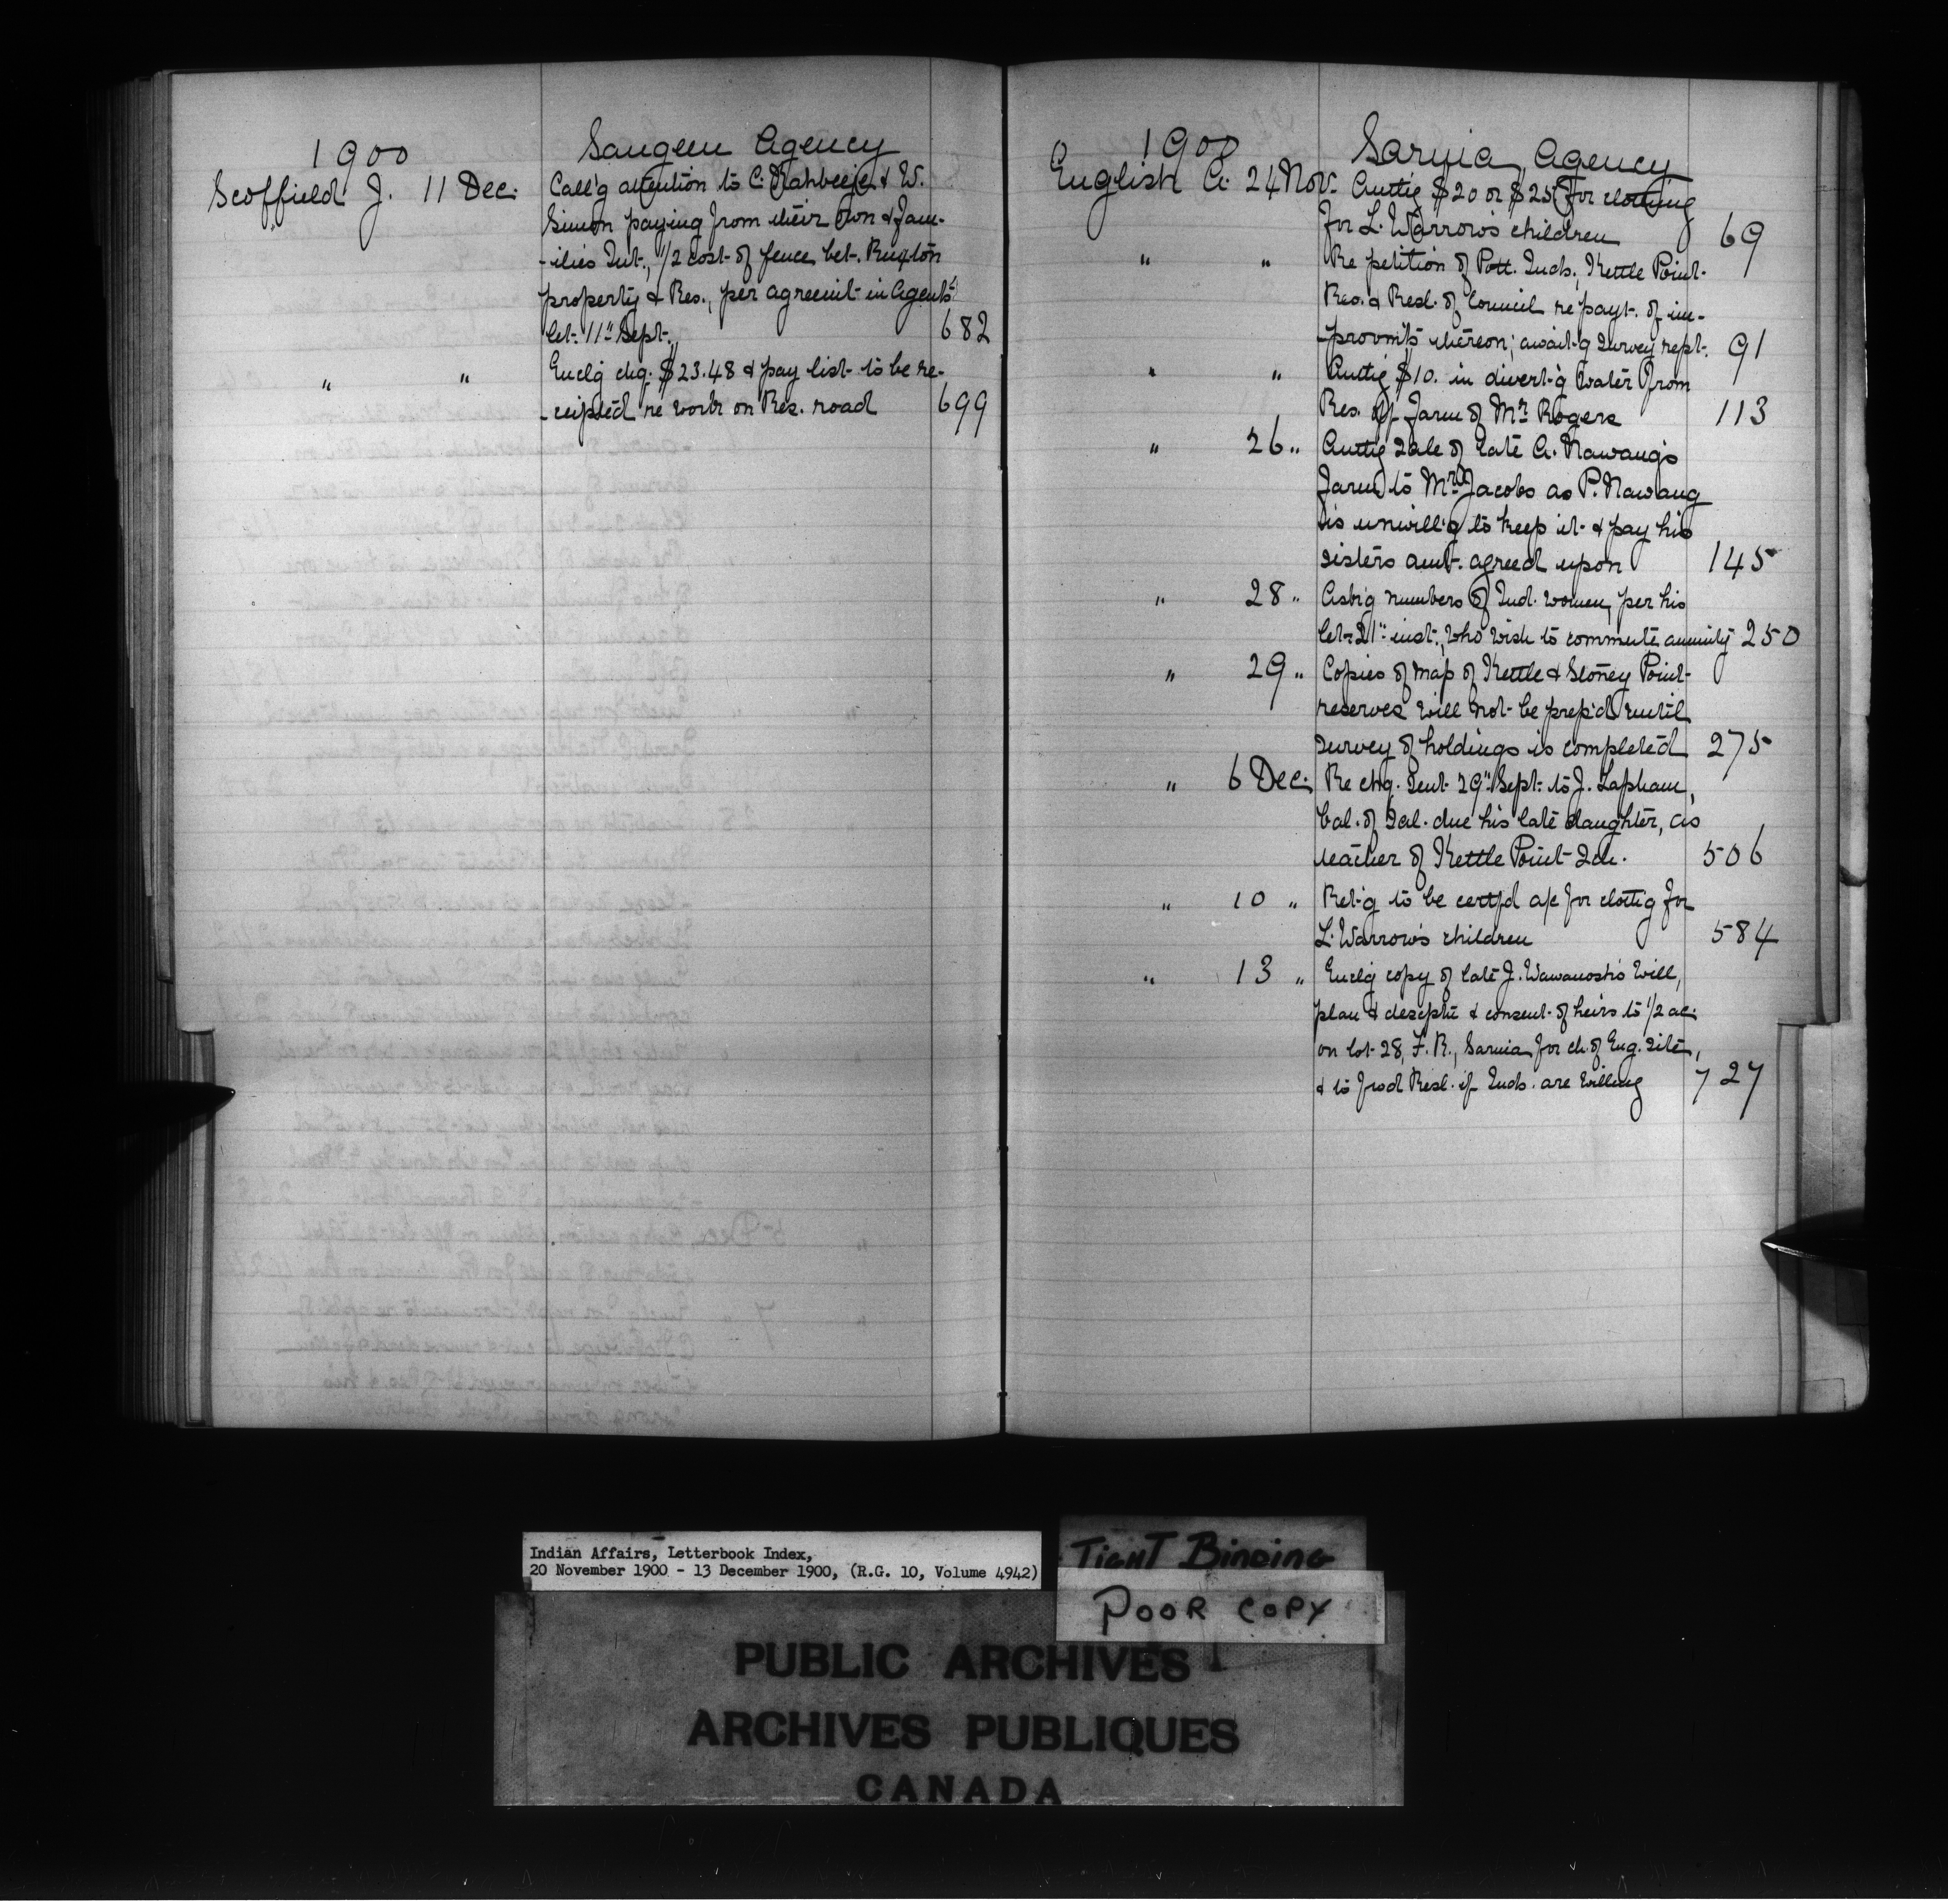 1900 Saugeen Agency
Scoffield J. 11 Dec. Call'g attention to C. Kahbeeje & W.
Simon paying from their own & fam-
-ilies Int., 1/2 cost of fence bet. Ruxton
property & Res., per agreemt in Agent's
let. 11" Sept. 682
" " Enclg chq. $23.48 & pay list to be re-
-ceipted re work on Res. road 699
1900 Sarnia Agency
English A. 24 Nov. Authg $20 or $25 for clothing
for L. Warrow's children 69
" " Re petition of Pott. Inds. Kettle Point
Res. & Resl. of Council re payt. of im-
-provmts thereon; await'g survey rept. 91
" " Authg $10. in divert'g water from
Res. off farm of Mr. Rogers 113
" 26 " Authg sale of late A. Nawang's
farm to Mrs Jacobs as P. Nawang
is unwill'g to keep it & pay his
sisters amt. agreed upon 145
" 28 " Ask'g numbers of Ind. women, per his
let. 21" inst., who wish to commute annuity 250
" 29 " Copies of map of Kettle & Stoney Point
reserves will not be prep'd until
survey of holdings is completed 275
" 6 Dec. Re chq. sent 29" Sept. to J. Lapham,
bal. of Sal. due his late daughter, as
teacher of Kettle Point Sch. 506
" 10 " Ret'g to be certfd a/c for clothg for
L. Warrow's children 584
" 13 " Enclg copy of late J. Wawanosh's Will,
plan & descptn & consent of heirs to 1/2 ac.
on lot 28, F. R., Sarnia for ch. of Eng. site,
& to fwd Resl. if Inds. are willing 727
Indian Affairs, Letterbook Index,
20 November 1900 - 13 December 1900, (R.G. 10, Volume 4942)
TIGHT BINDING
POOR COPY
PUBLIC ARCHIVES
ARCHIVES PUBLIQUES
CANADA